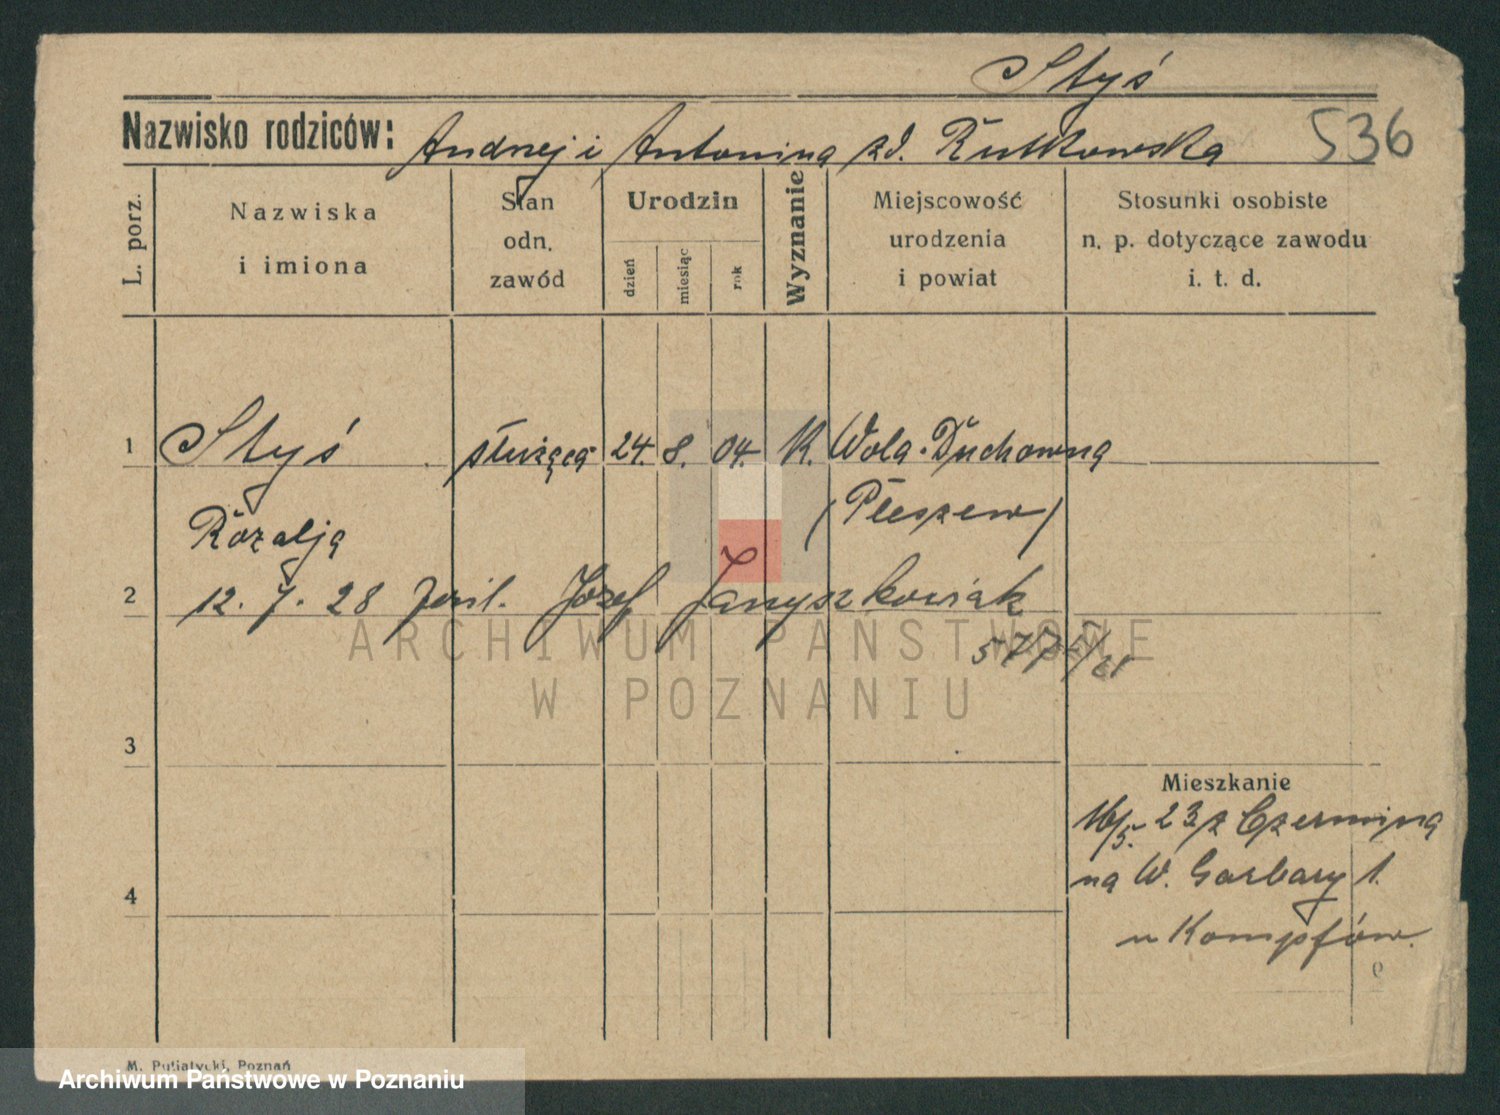 Styś
Nazwisko rodziców: Andrzej i Antonina zd. Rutkowska 536
L. porz.
Nazwiska
i imiona
Stan
odn.
zawód
Urodzin
dzień
miesiąc
rok
Wyznanie
Miejscowość
urodzenia
i powiat
Stosunki osobiste
n. p. dotyczące zawodu
i. t. d.
1 Styś służąca 24. 8. 04. K. Wola-Duchowna
Rozalja (Pleszew)
2 12. 7. 28 Józef Janyszkowiak
3
Mieszkanie
16/5. 23 z Czermina
na W. Garbary 1.
4
u Kompfów.
M. Putiatycki, Poznań
ARCHIWUM PAŃSTWOWE
W POZNANIU
Archiwum Państwowe w Poznaniu